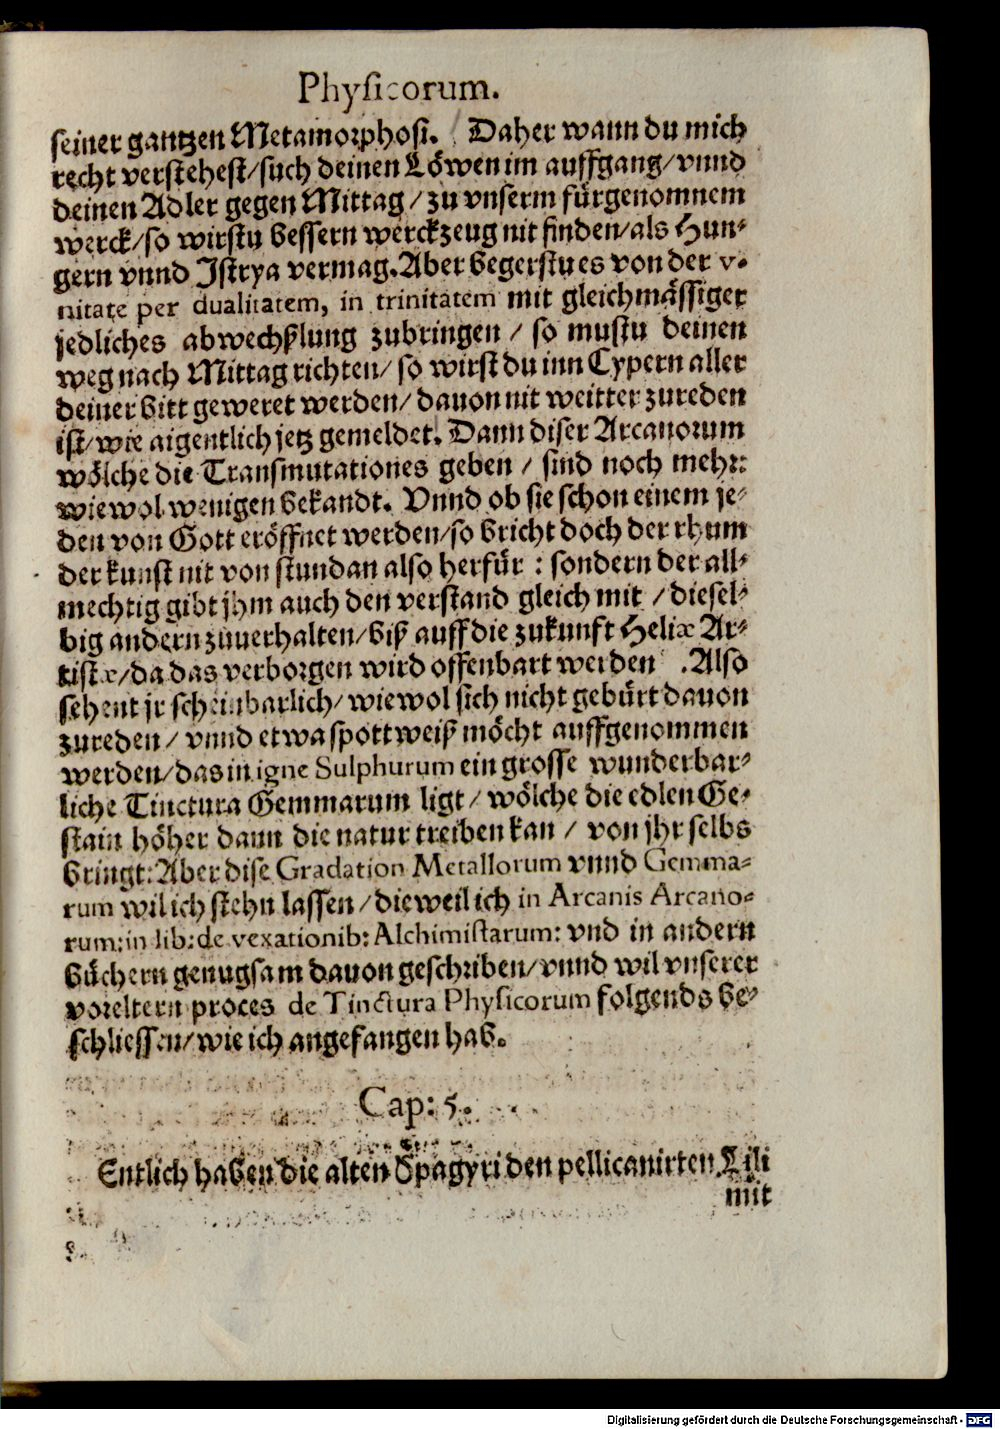 Physicorum.
seiner gantzen Metamorphosi. Daher wann du mich
recht verstehest/such deinen Löwen im auffgang/vnnd
deinen Adler gegen Mittag/zu vnserm fürgenomnem
werck/so wirstu bessern werckzeug nit finden/als Hun-
gern vnnd Istrya vermag. Aber begerstu es von der v-
nitate per dualitatem, in trinitatem mit gleichmässiger
jedliches abwechßlung zubringen/so mustu deinen
weg nach Mittag richten/so wirst du inn Cypern aller
deiner bitt geweret werden/dauon nit weitter zureden
ist/wie aigentlich jetz gemeldet. Dann diser Arcanorum
wölche die Transmutationes geben/sind noch mehr:
wiewol wenigen bekandt. Vnnd ob sie schon einem je-
den von Gott eröffnet werden/so bricht doch der rhum
der kunst nit von stundan also herfür: sondern der all-
mechtig gibt jhm auch den verstand gleich mit/diesel-
big andern zuuerhalten/biß auff die zukunft Heliæ Ar-
tistæ/da das verborgen wird offenbart werden. Also
sehent jr scheinbarlich/wiewol sich nicht gebürt dauon
zureden/vnnd etwa spottweiß möcht auffgenommen
werden/das in igne Sulphurum ein grosse wunderbar-
liche Tinctura Gemmarum ligt/wölche die edlen Ge-
stain höher dann die natur treiben kan/von jhr selbs
bringt: Aber dise Gradation Metallorum vnnd Gemma-
rum wil ich stehn lassen/dieweil ich in Arcanis Arcano-
rum: in lib: de vexationib: Alchimistarum: vnd in andern
büchern genugsam dauon geschriben/vnnd wil vnserer
voreltern proces de Tinctura Physicorum folgends be-
schliessen/wie ich angefangen hab.
Cap: 5.
Entlich haben die alten Spagyri den pellicanirten Lili
mit
Digitalisierung gefördert durch die Deutsche Forschungsgemeinschaft - DFG